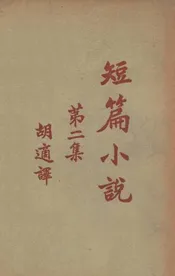 短篇小說
第二集
胡適譯